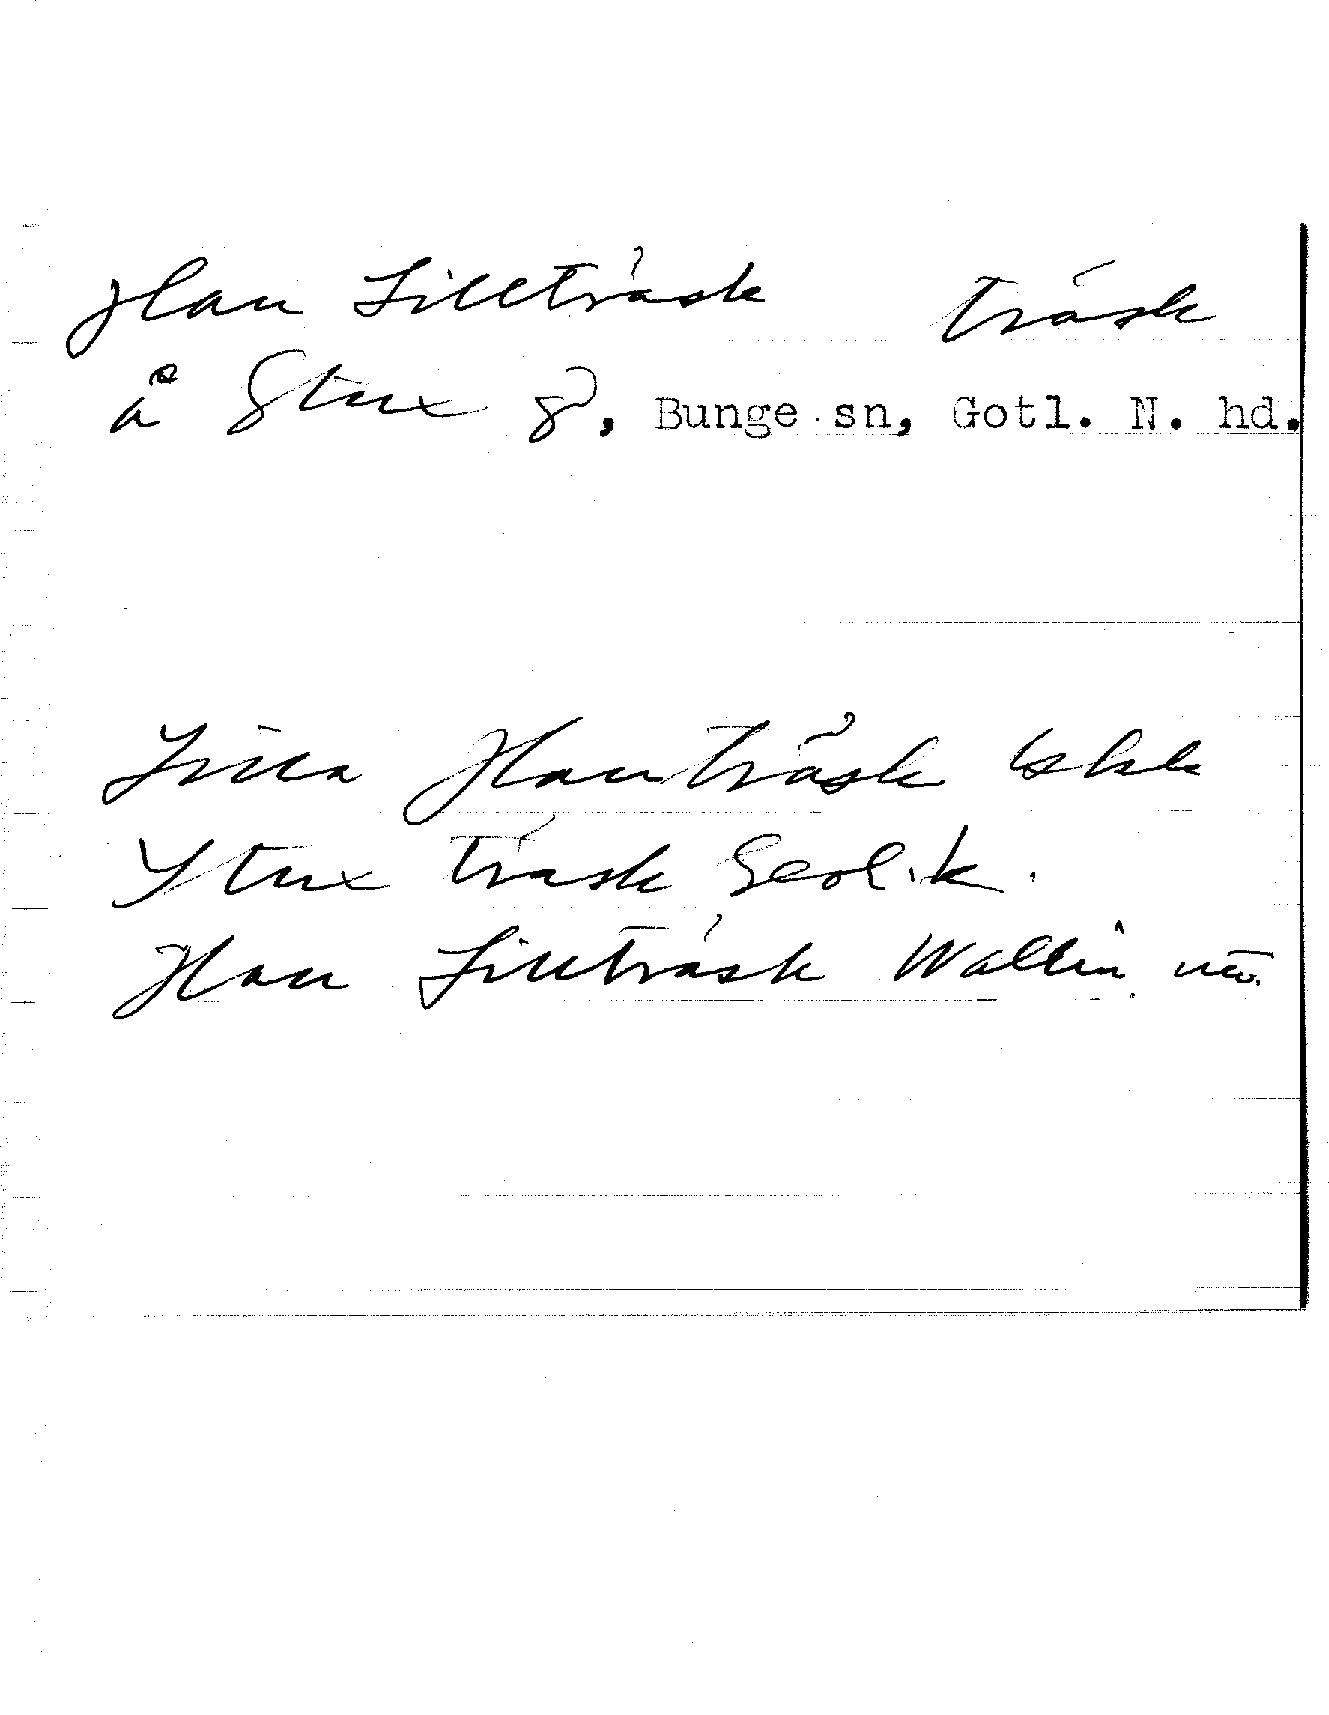 Hau Lillträsk träsk
å Stux g, Bunge sn, Gotl. N. hd.
Lilla Hau träsk
Stux träsk Geol. k.
Hau Lillträsk Wallin